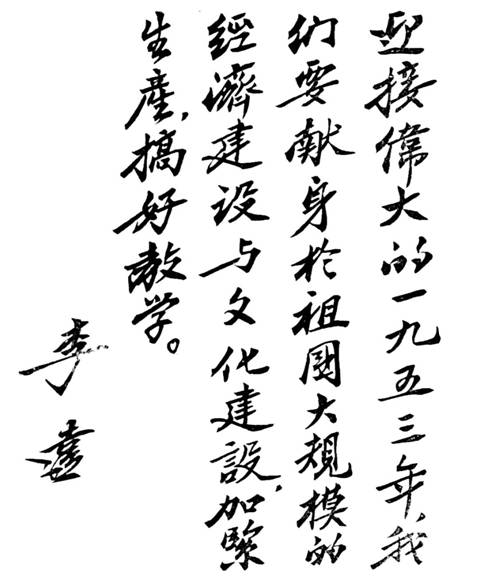 迎接偉大的一九五三年,我
们要献身於祖國大規模的
經濟建设与文化建設,加緊
生產,搞好教学。
李達